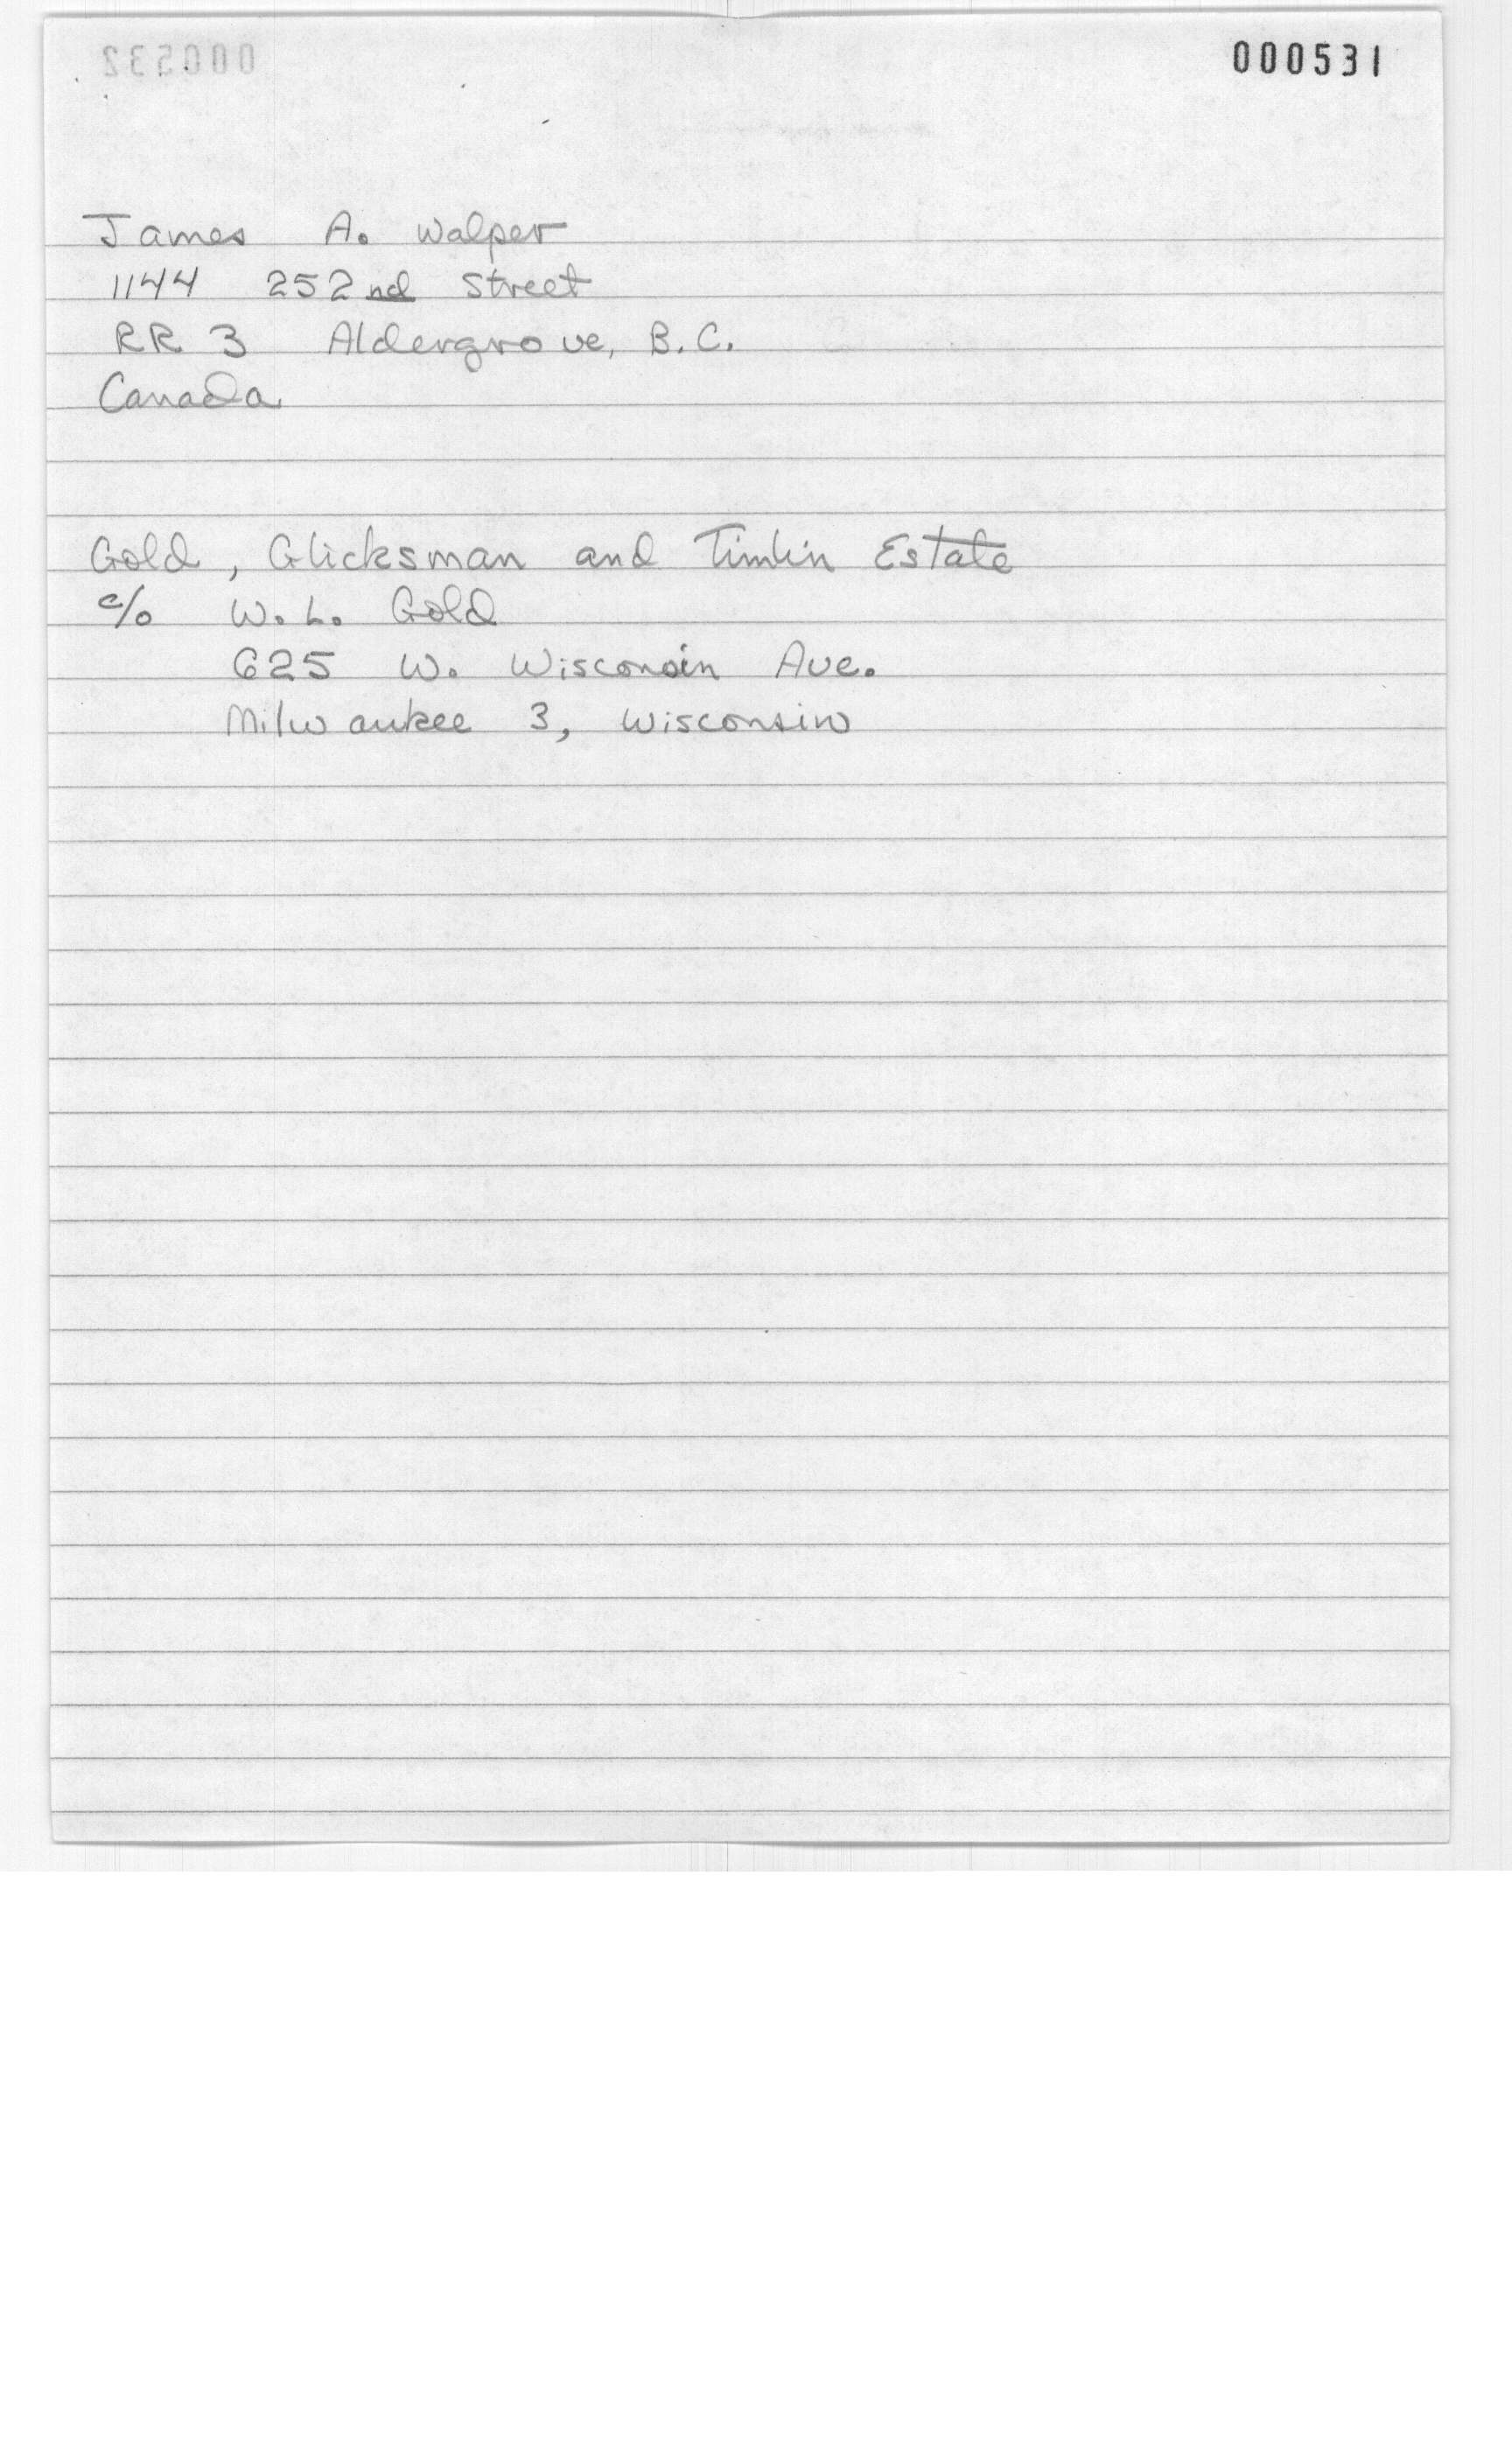 000531
James A. Walper
1144 252nd Street
RR 3 Aldergrove, B.C.
Canada
Gold, Glicksman and Timlin Estate
c/o W. L. Gold
625 W. Wisconsin Ave.
Milwaukee 3, Wisconsin